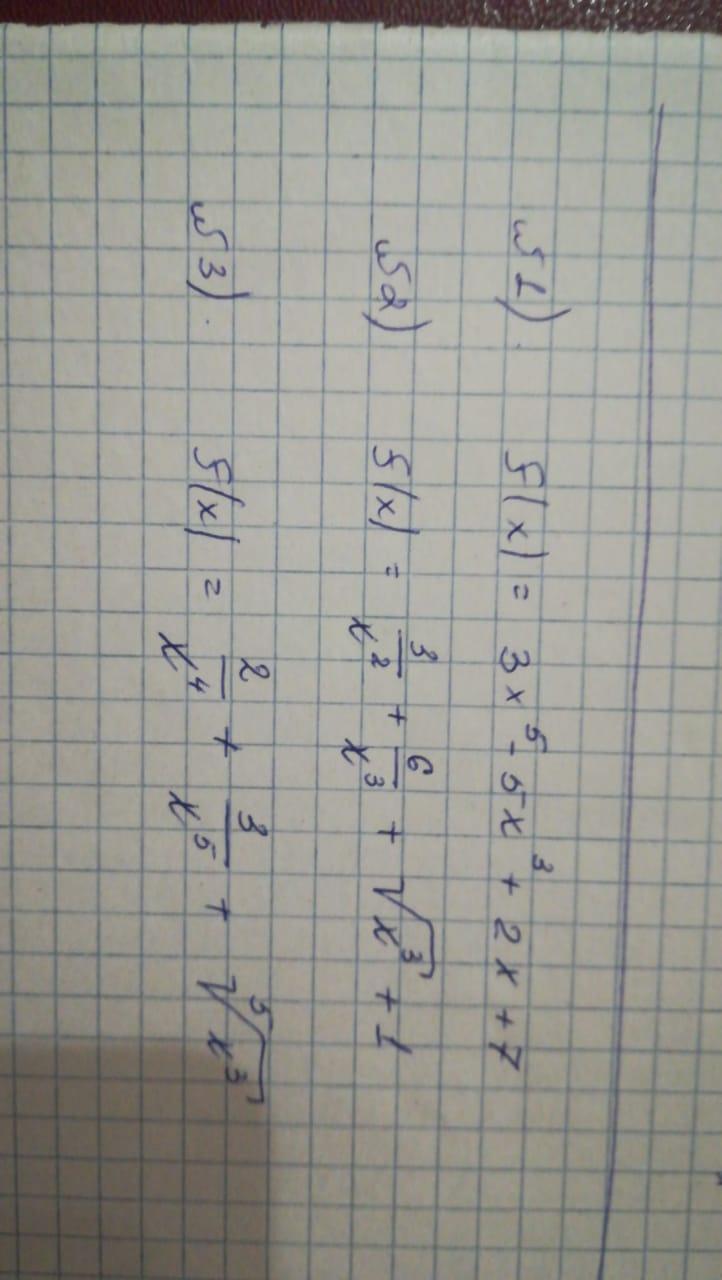 № 1). f(x) = 3x⁵ - 5x³ + 2x + 7
№ 2) f(x) = 3/x² + 6/x³ + √x³ + 1
№ 3). f(x) = 2/x⁴ + 3/x⁵ + ⁵√x³